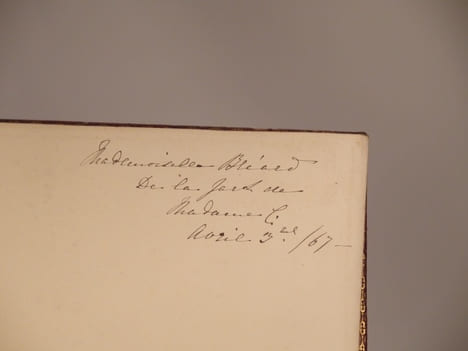 Mademoiselle Bléard
De la part de
Madame C.
Avril 3rd /67 –